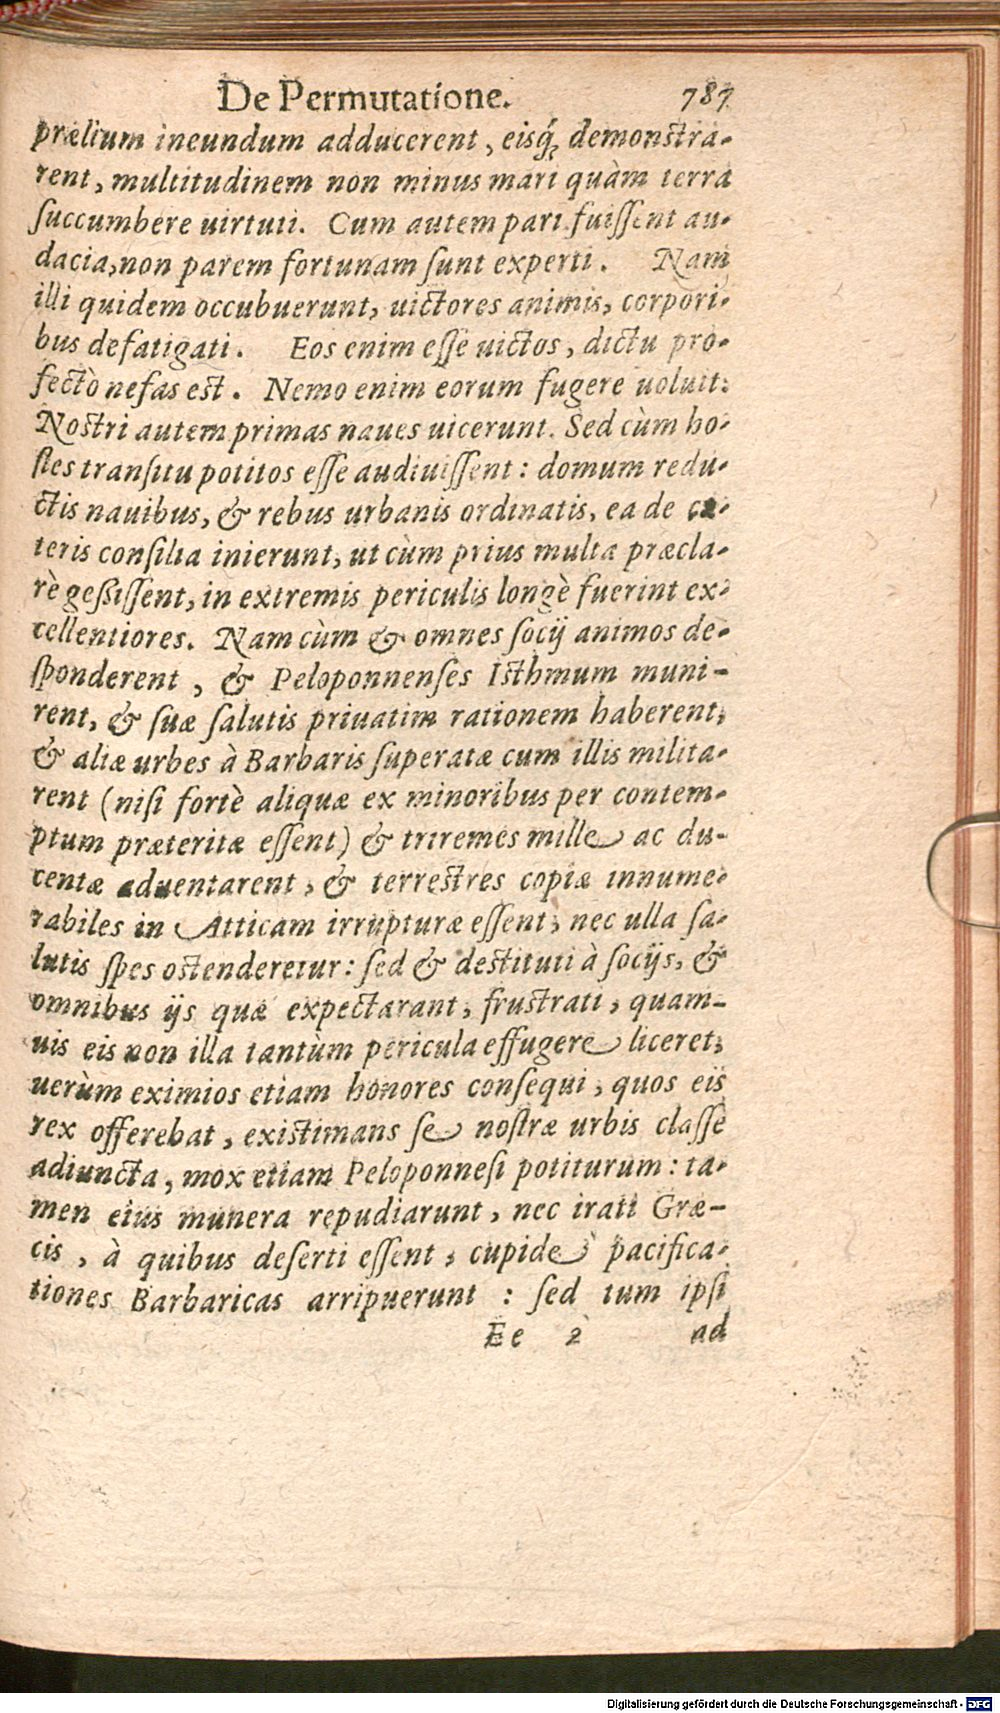 De Permutatione. 787
prælium ineundum adducerent, eisq́; demonstra-
rent, multitudinem non minus mari quàm terra
ſuccumbere uirtuti. Cum autem pari fuiſſent au-
dacia, non parem fortunam ſunt experti. Nam
illi quidem occubuerunt, uictores animis, corpori-
bus defatigati. Eos enim eſſe uictos, dictu pro-
fectò nefas est. Nemo enim eorum fugere uoluit:
Nostri autem primas naues uicerunt. Sed cùm ho-
ſtes tranſitu potitos eſſe audiuiſſent: domum redu-
ctis nauibus, & rebus urbanis ordinatis, ea de cæ-
teris conſilia inierunt, ut cùm prius multa præcla-
rè geſsiſſent, in extremis periculis longè fuerint ex-
cellentiores. Nam cùm & omnes ſocij animos de-
ſponderent, & Peloponnenſes Isthmum muni-
rent, & ſuæ ſalutis priuatim rationem haberent,
& aliæ urbes à Barbaris ſuperatæ cum illis milita-
rent (niſi fortè aliquæ ex minoribus per contem-
ptum præteritæ eſſent) & triremes mille ac du-
centæ aduentarent, & terrestres copiæ innume-
rabiles in Atticam irrupturæ eſſent, nec ulla ſa-
lutis ſpes ostenderetur: ſed & destituti à ſocijs, &
omnibus ijs quæ expectarant, frustrati, quam-
uis eis non illa tantùm pericula effugere liceret,
uerùm eximios etiam honores conſequi, quos eis
rex offerebat, existimans ſe noſtræ urbis claſſe
adiuncta, mox etiam Peloponneſi potiturum: ta-
men eius munera repudiarunt, nec irati Græ-
cis, à quibus deſerti eſſent, cupide pacifica-
tiones Barbaricas arripuerunt : ſed tum ipſi
Ee 2 ad
Digitalisierung gefördert durch die Deutsche Forschungsgemeinschaft - DFG